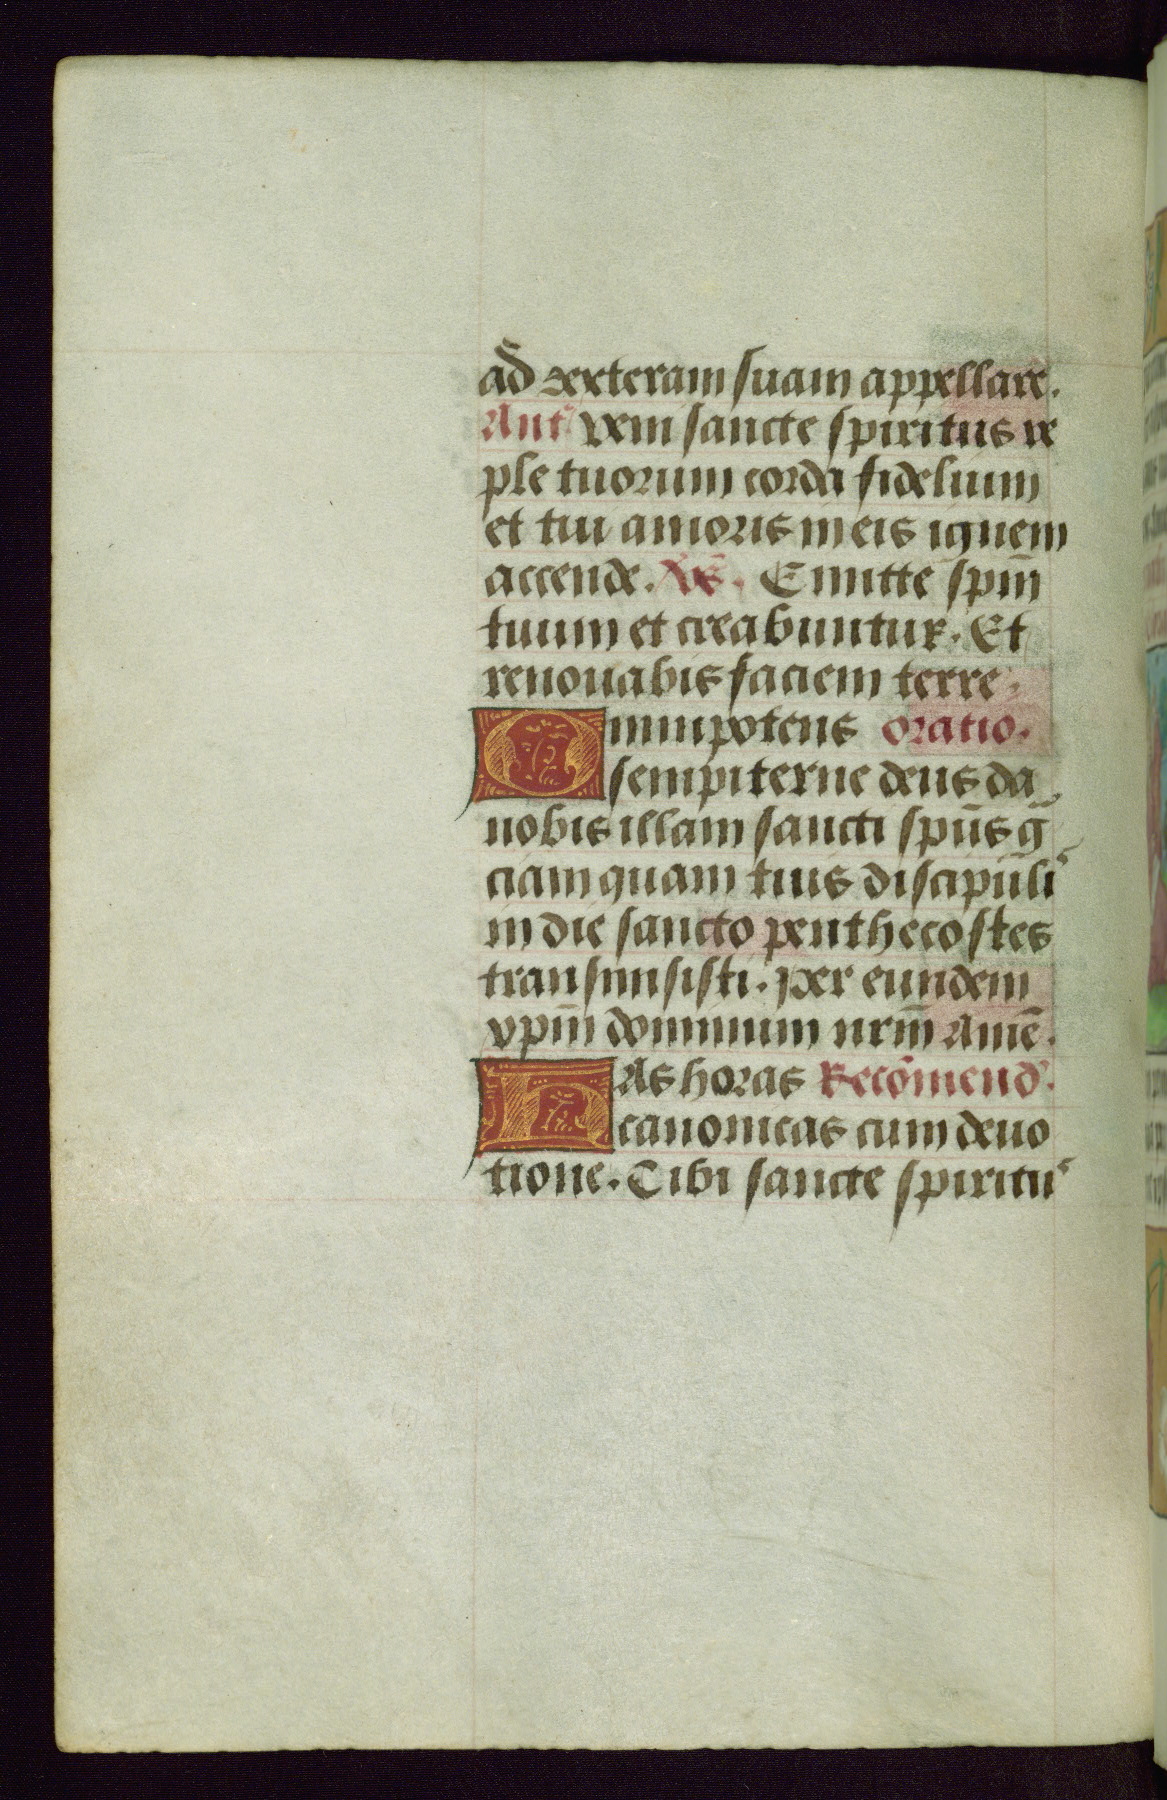 ad dexteram suam appellare.
Anť Veni sancte spiritus re
ple tuorum corda fidelium
et tui amoris in eis ignem
accende. Vẽs. Emitte spm̄
tuum et creabuntur. Et
renouabis faciem terre.
Omnipotens oratio.
sempiterne deus da
nobis illam sancti spūs gͣ
ciam quam tuis discipuli
in die sancto penthecostes
transmisisti. Per eundem
xpm̄ dominum nrm̄ Amē.
HAs horas Recōmend
canonicas cum deuo
tione. Tibi sancte spiritus